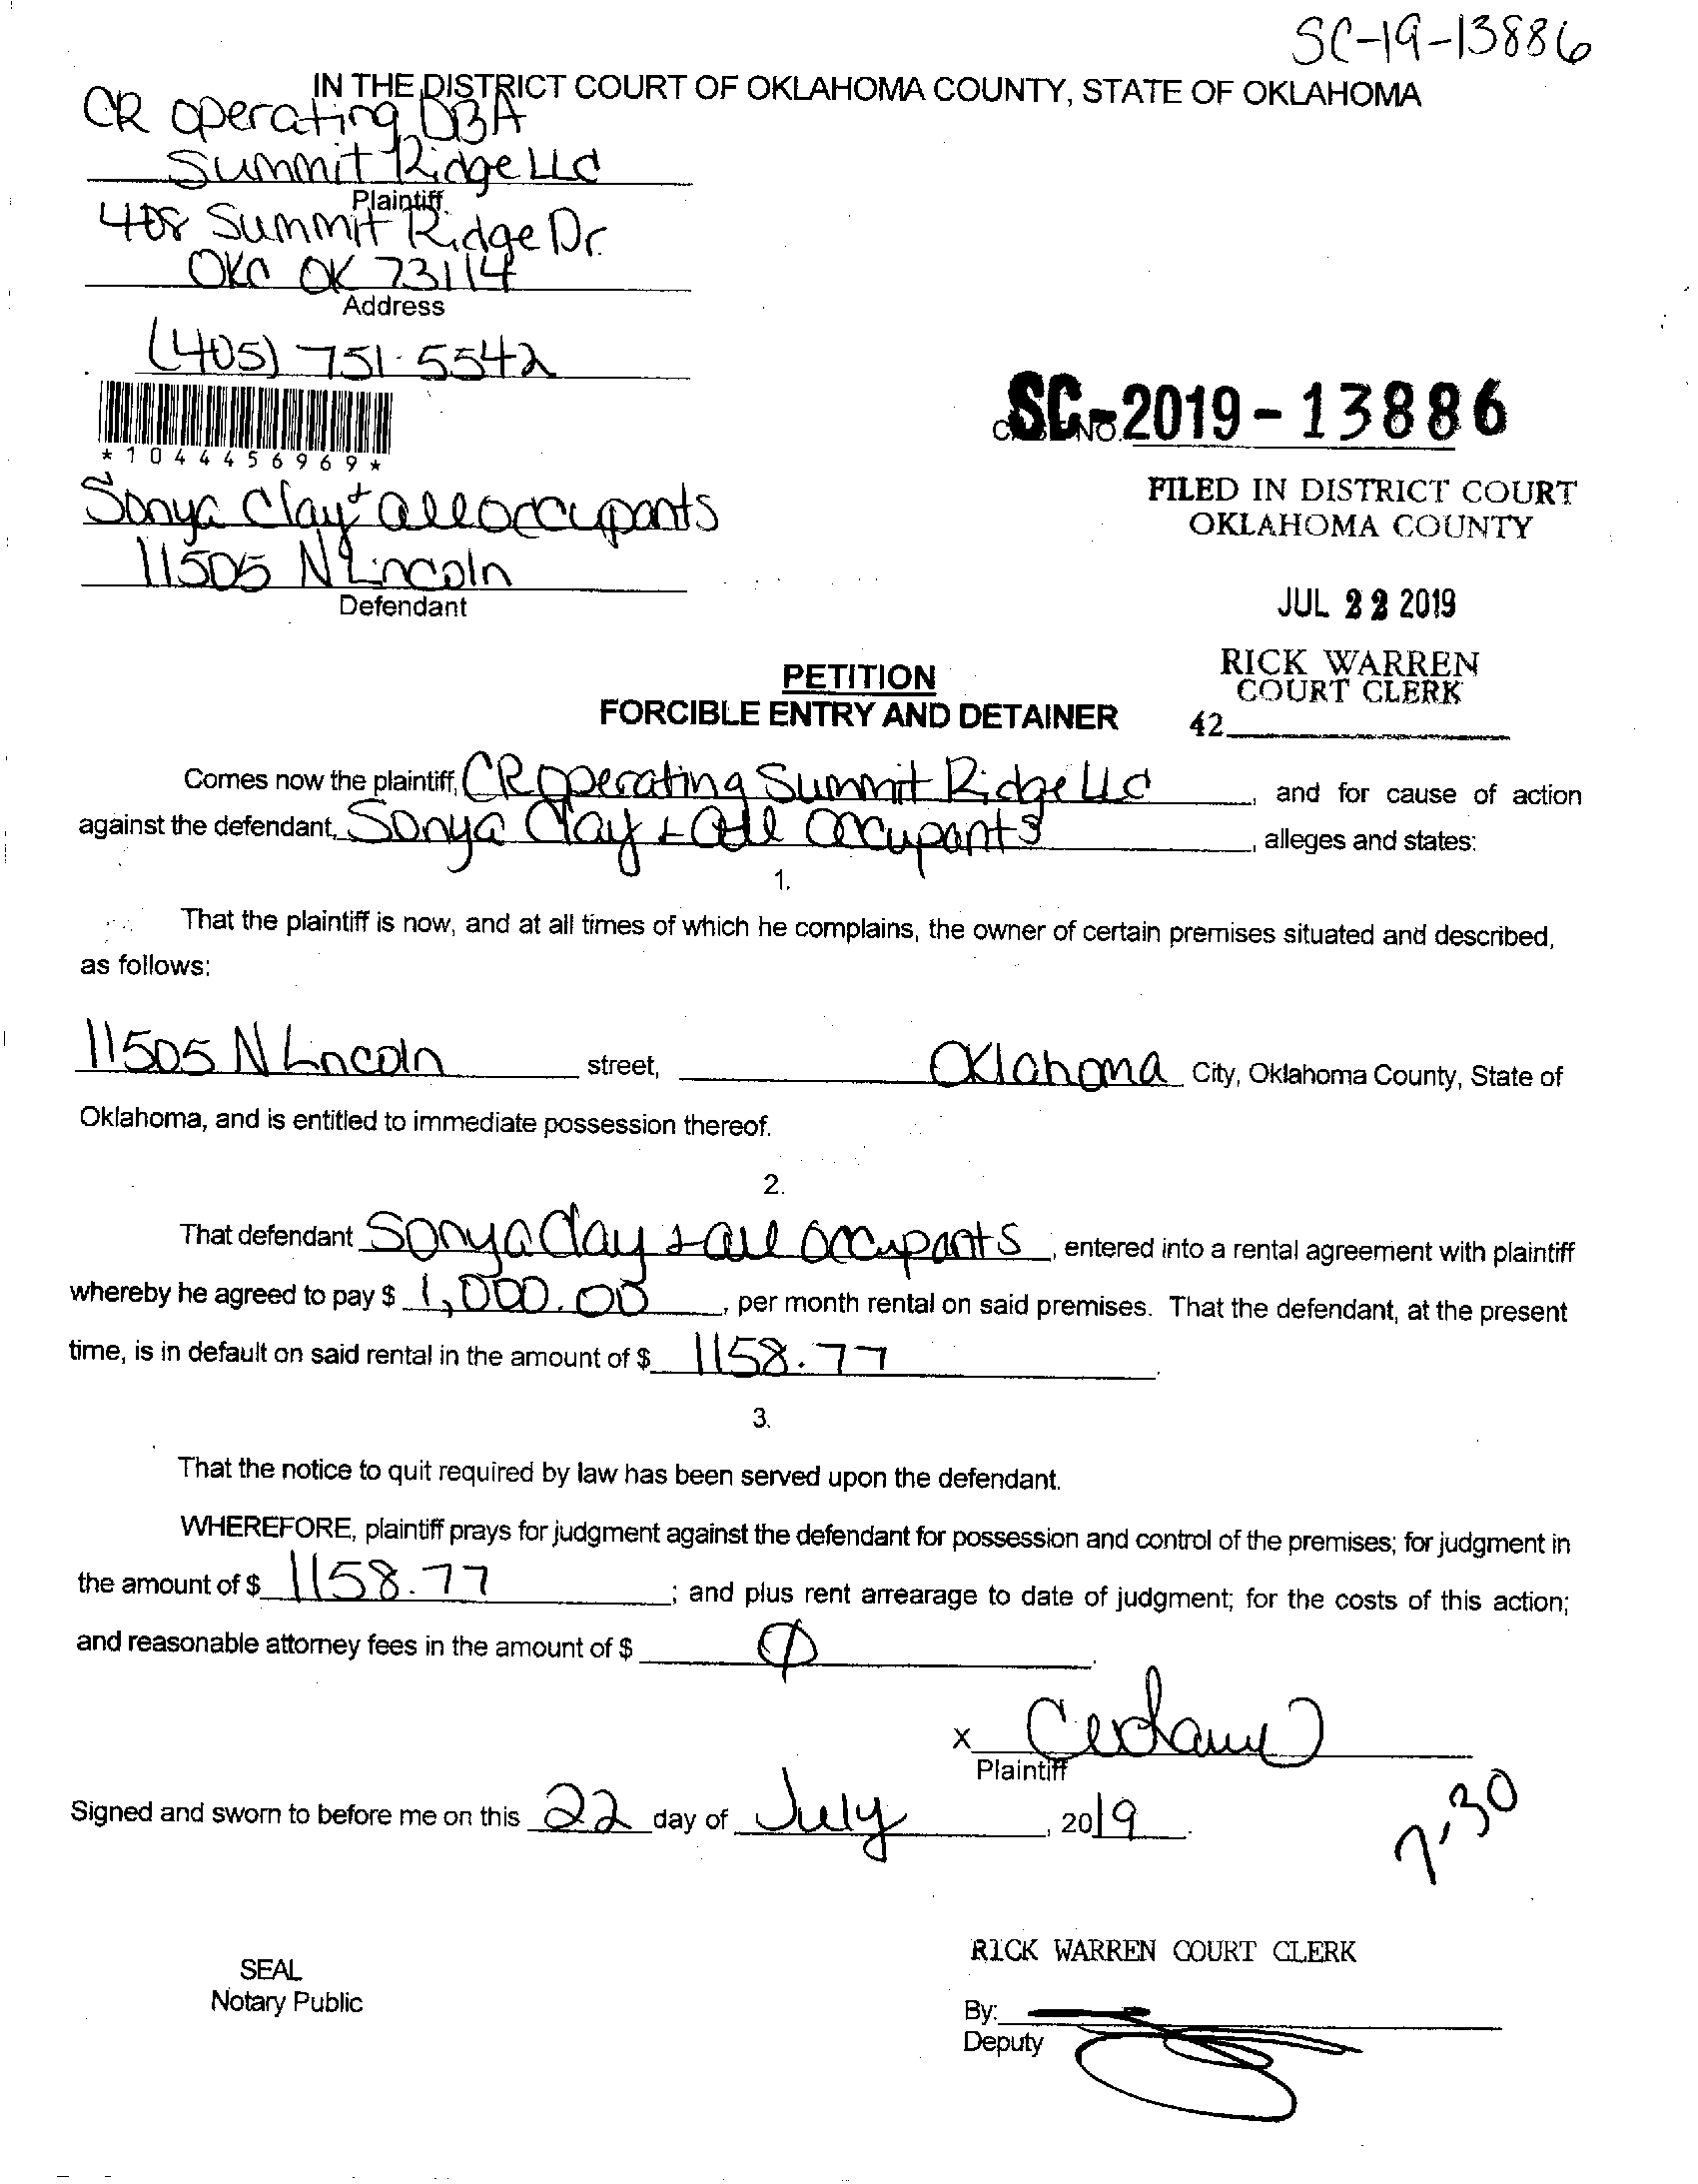 SC-19-13886
IN THE DISTRICT COURT OF OKLAHOMA COUNTY, STATE OF OKLAHOMA
CR Operating DBA
Summit Ridge LLC
Plaintiff
408 Summit Ridge Dr.
OKC OK 73114
Address
(405) 751-5542
*1044456969*
SC-2019-13886
FILED IN DISTRICT COURT
OKLAHOMA COUNTY
JUL 22 2019
RICK WARREN
COURT CLERK
42
Sonya Clay + all occupants
11505 N Lincoln
Defendant
PETITION
FORCIBLE ENTRY AND DETAINER
Comes now the plaintiff, CR Operating Summit Ridge LLC, and for cause of action
against the defendant, Sonya Clay + all occupants, alleges and states:
1.
That the plaintiff is now, and at all times of which he complains, the owner of certain premises situated and described,
as follows:
11505 N Lincoln street, Oklahoma City, Oklahoma County, State of
Oklahoma, and is entitled to immediate possession thereof.
2.
That defendant Sonya Clay + all occupants, entered into a rental agreement with plaintiff
whereby he agreed to pay $ 1,000.00, per month rental on said premises. That the defendant, at the present
time, is in default on said rental in the amount of $ 1158.77.
3.
That the notice to quit required by law has been served upon the defendant.
WHEREFORE, plaintiff prays for judgment against the defendant for possession and control of the premises; for judgment in
the amount of $ 1158.77; and plus rent arrearage to date of judgment; for the costs of this action;
and reasonable attorney fees in the amount of $ 0.
X
Plaintiff
Signed and sworn to before me on this 22 day of July, 2019.
7-30
RICK WARREN COURT CLERK
SEAL
Notary Public
By:
Deputy